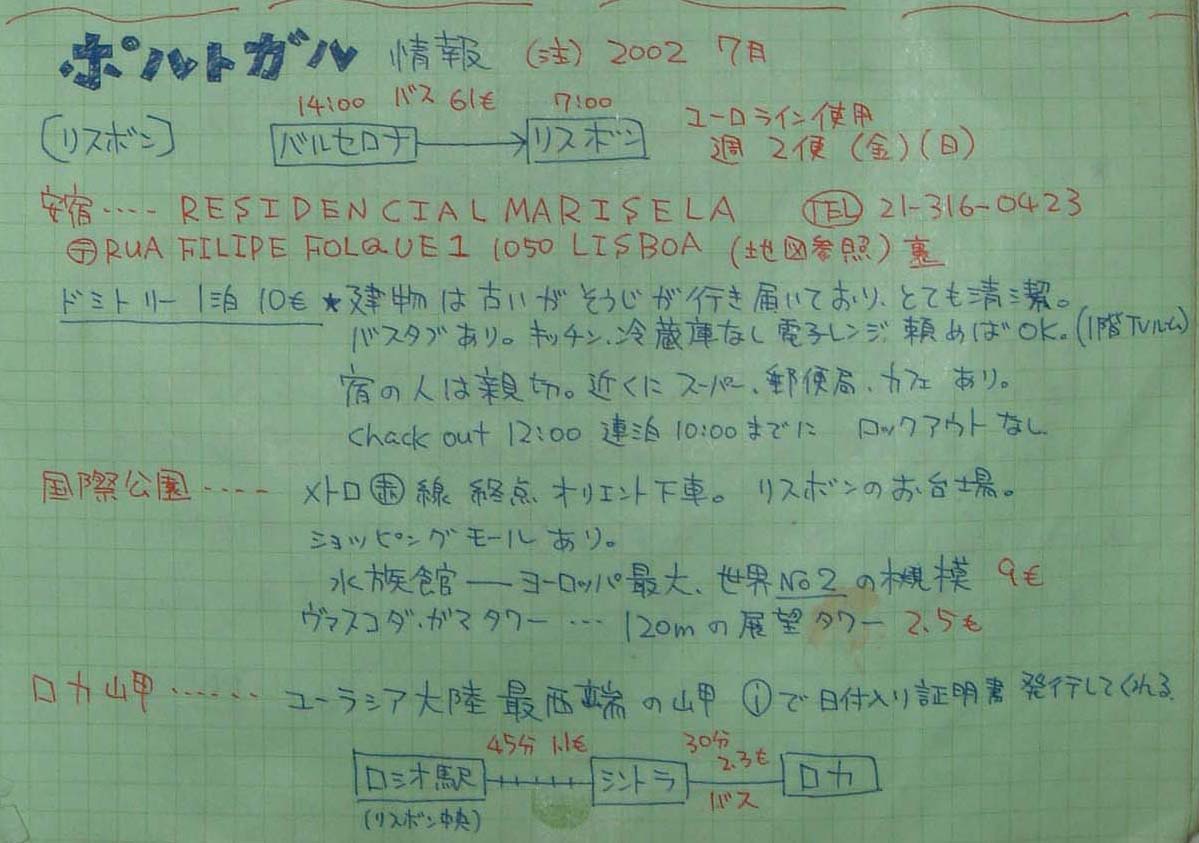 ポルトガル 情報 (注) 2002 7月
14:00 バス 61€ 7:00
[リスボン] バルセロナ → リスボン ユーロライン使用
週 2便 (金)(日)
安宿‥‥ RESIDENCIAL MARISELA TEL 21-316-0423
〒RUA FILIPE FOLQUE 1 1050 LISBOA (地図参照) 裏
ドミトリー 1泊 10€ ★建物は古いがそうじが行き届いており、とても清潔。
バスタブあり。キッチン、冷蔵庫なし 電子レンジ 頼めばOK。(1階TVルーム)
宿の人は親切。近くにスーパー、郵便局、カフェあり。
chack out 12:00 連泊 10:00までに ロックアウトなし
国際公園‥‥ メトロ赤線 終点 オリエント下車。 リスボンのお台場。
ショッピングモールあり。
水族館 ― ヨーロッパ最大、世界No2の規模 9€
ヴァスコダ・ガマタワー … 120mの展望タワー 2.5€
ロカ岬‥‥‥ ユーラシア大陸最西端の岬 iで日付入り証明書 発行してくれる
45分 1.1€ 30分
2.3€
ロシオ駅 シントラ ロカ
バス
(リスボン中央)